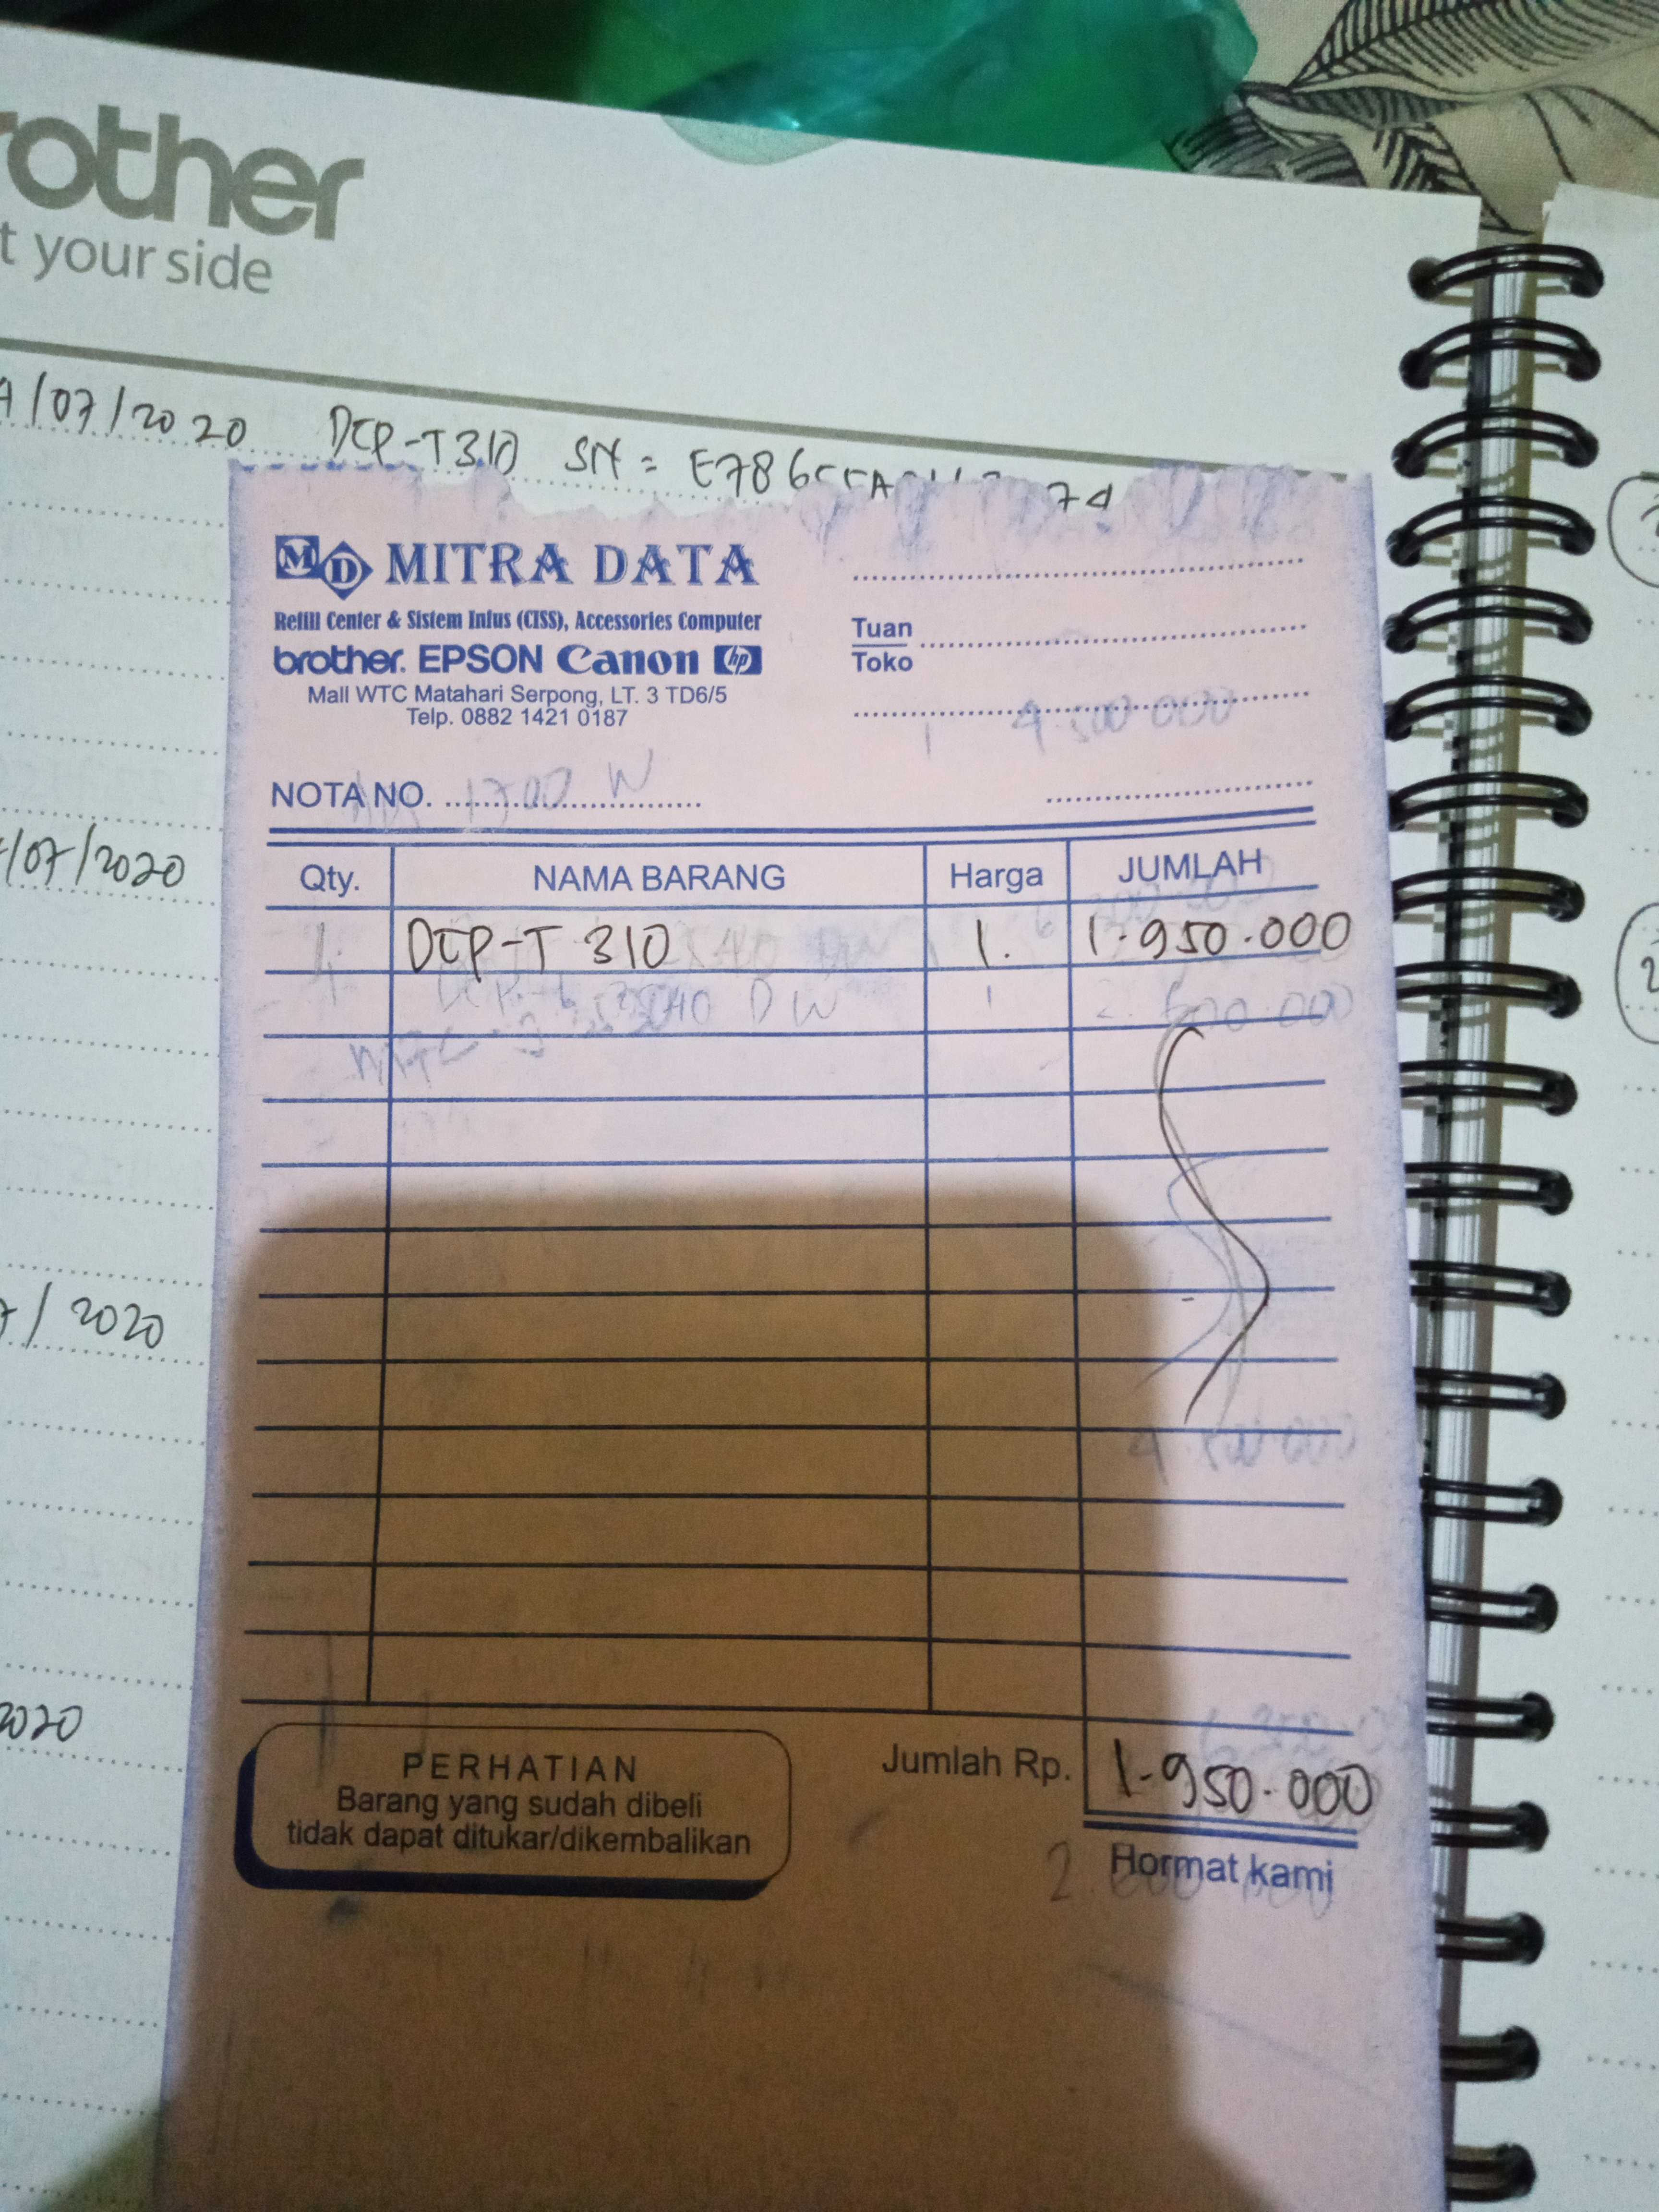 other
t your side
/07/2020 DCP-T310 SN =
MD MITRA DATA
Refill Center & Sistem Infus (CISS), Accessories Computer
brother. EPSON Canon hp
Mall WTC Matahari Serpong, LT. 3 TD6/5
Telp. 0882 1421 0187
Tuan
Toko
4.500 000
NOTA NO. 1700 W
/07/2020
Qty. NAMA BARANG Harga JUMLAH
DCP-T 310 1. 1.950.000
3540 DW 1 2.600.000
/ 2020
4.500 000
2020
PERHATIAN
Barang yang sudah dibeli
tidak dapat ditukar/dikembalikan
Jumlah Rp. 1.950.000
Hormat kami